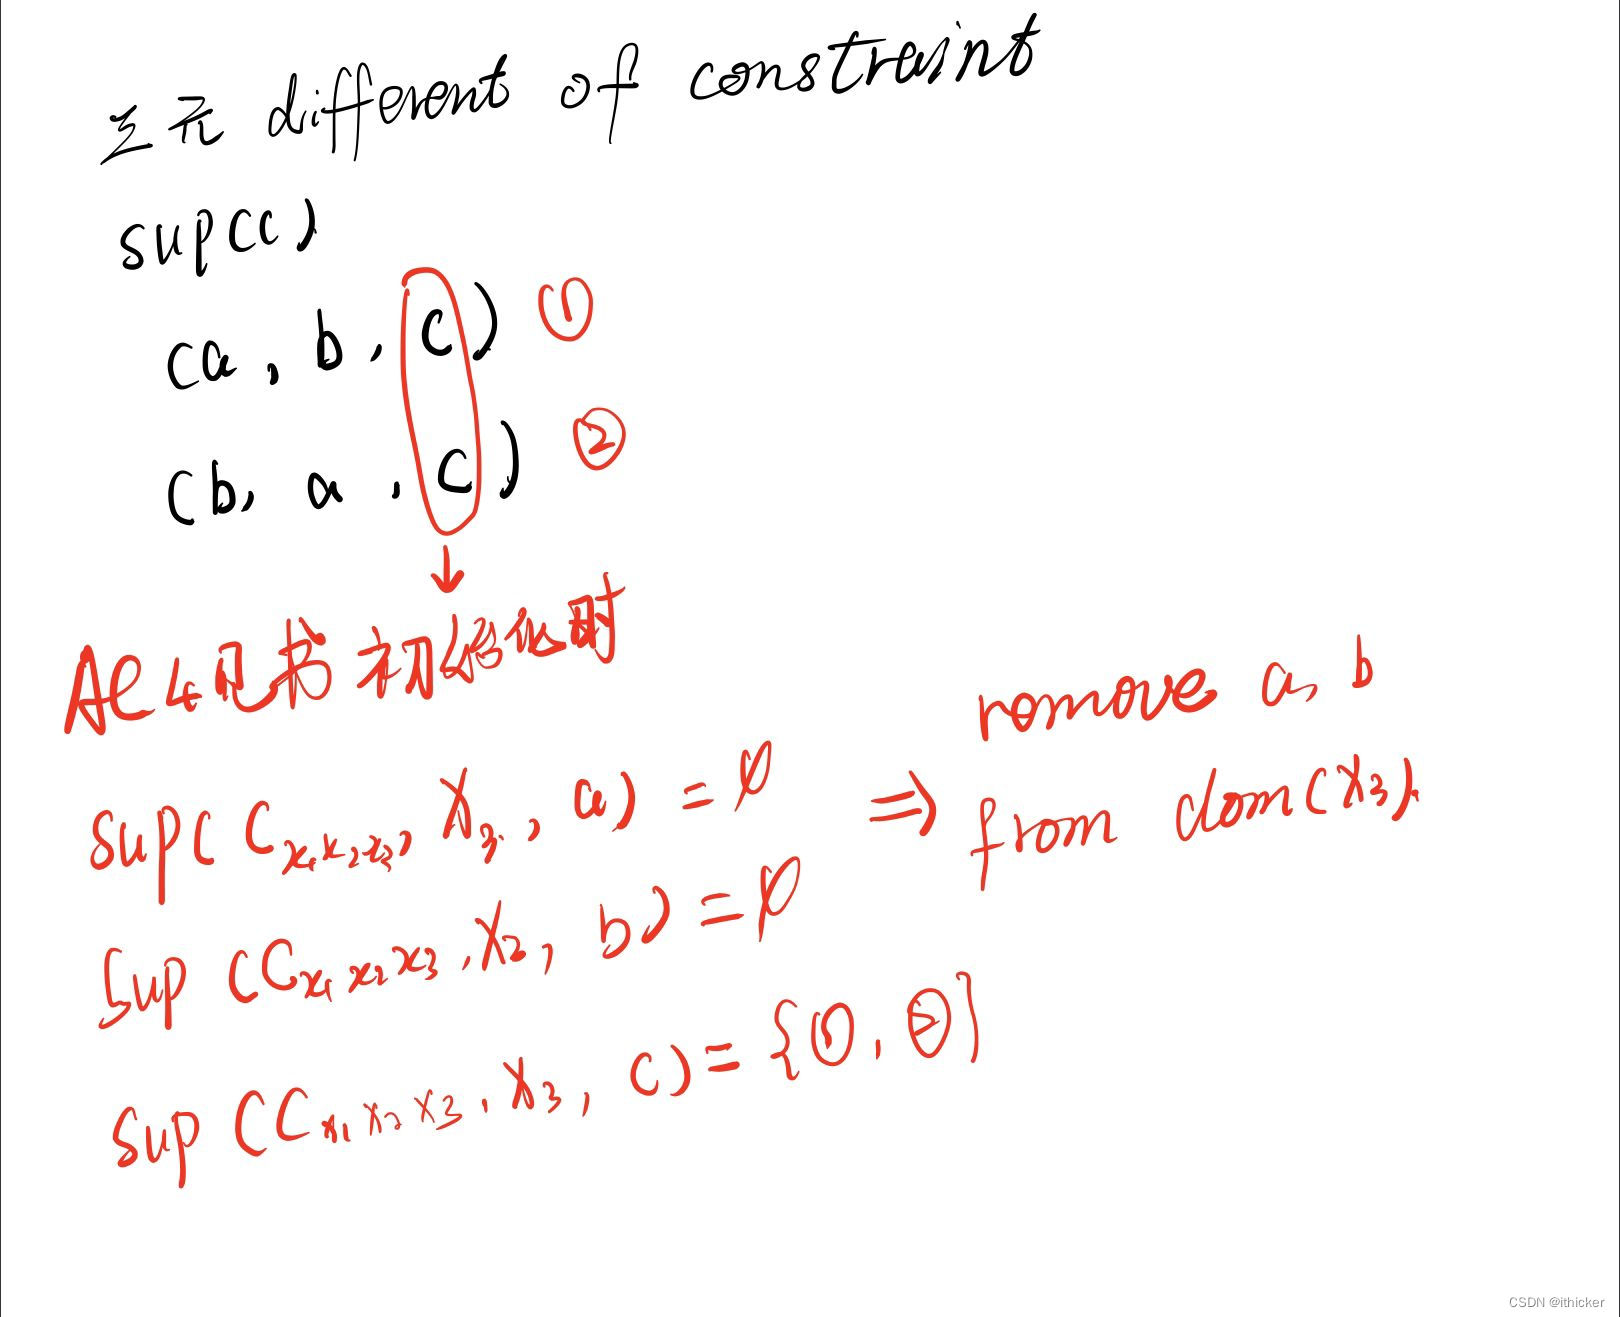 三元 different of constraint
sup(c)
(a, b, c) ①
(b, a, c) ②
AC4见书初始化时
sup( C x1x2x3, X3, a) = ∅ ⇒ romove a, b
from dom(X3).
Sup (C x1 x2 x3, X3, b) = ∅
Sup (C x1 x2 x3, X3, c) = {①, ②}
CSDN @ithicker